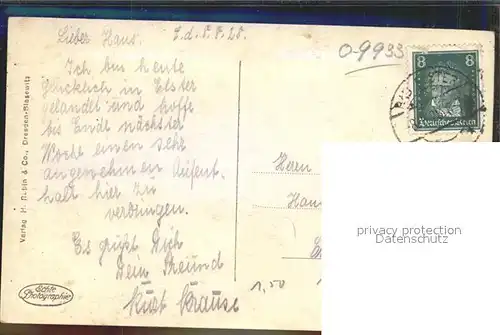 Lieber Hans.
Ich bin heute
glücklich in Elster
gelandet und hoffe
bis Ende nächster
Woche einen sehr
angenehmen Aufent-
halt hier zu
verbringen.
Es grüßt Dich
Dein Freund
Kurt Krause
0-9933
8 8
Deutsches Reich
Herrn
Han
1,50
privacy protection
Datenschutz
Verlag H. Rubin & Co., Dresden-Blasewitz
Echte
Photographie